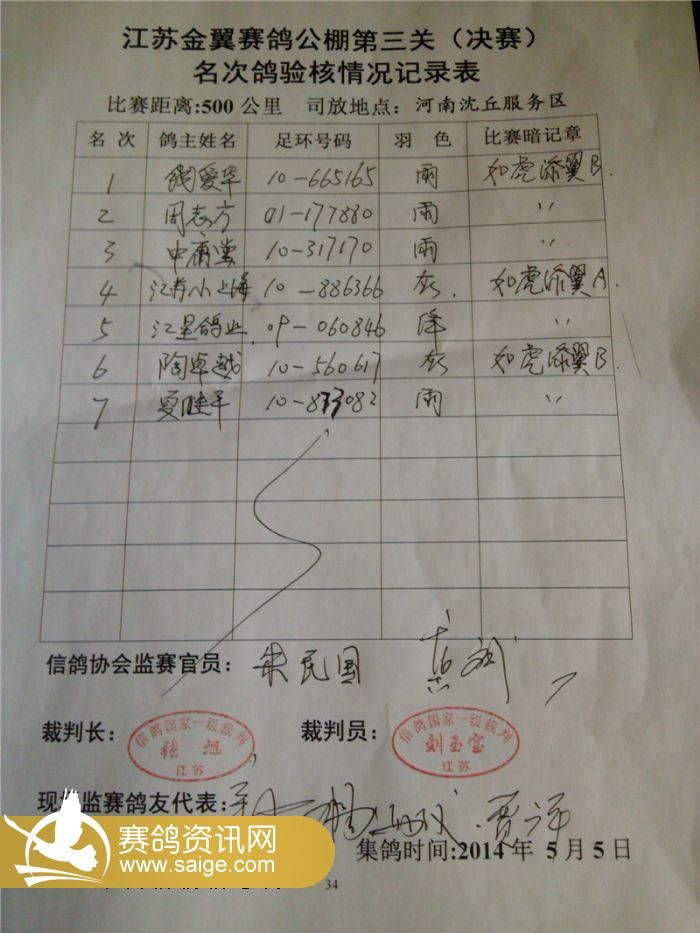 江苏金翼赛鸽公棚第三关（决赛）
名次鸽验核情况记录表
比赛距离:500公里 司放地点：河南沈丘服务区
名次 鸽主姓名 足环号码 羽色 比赛暗记章
1 爱华 10-665165 雨 如虎添翼B.
2 周志方 01-177880 雨 〃
3 中庸堂 10-317170 雨 〃
4 江苏小上海 10-886366 灰. 如虎添翼A.
5 江星鸽业. 09-060846 绛 〃
6 陶卓越 10-560617 灰 如虎添翼B.
7 夏 10-833082 雨 〃
信鸽协会监赛官员： 朱民国
裁判长： 信鸽国家一级裁判 张旭 江苏 裁判员： 信鸽国家一级裁判 刘玉宝 江苏
现场监赛鸽友代表：
集鸽时间:2014年 5月5日
赛鸽资讯网
www.saige.com
34